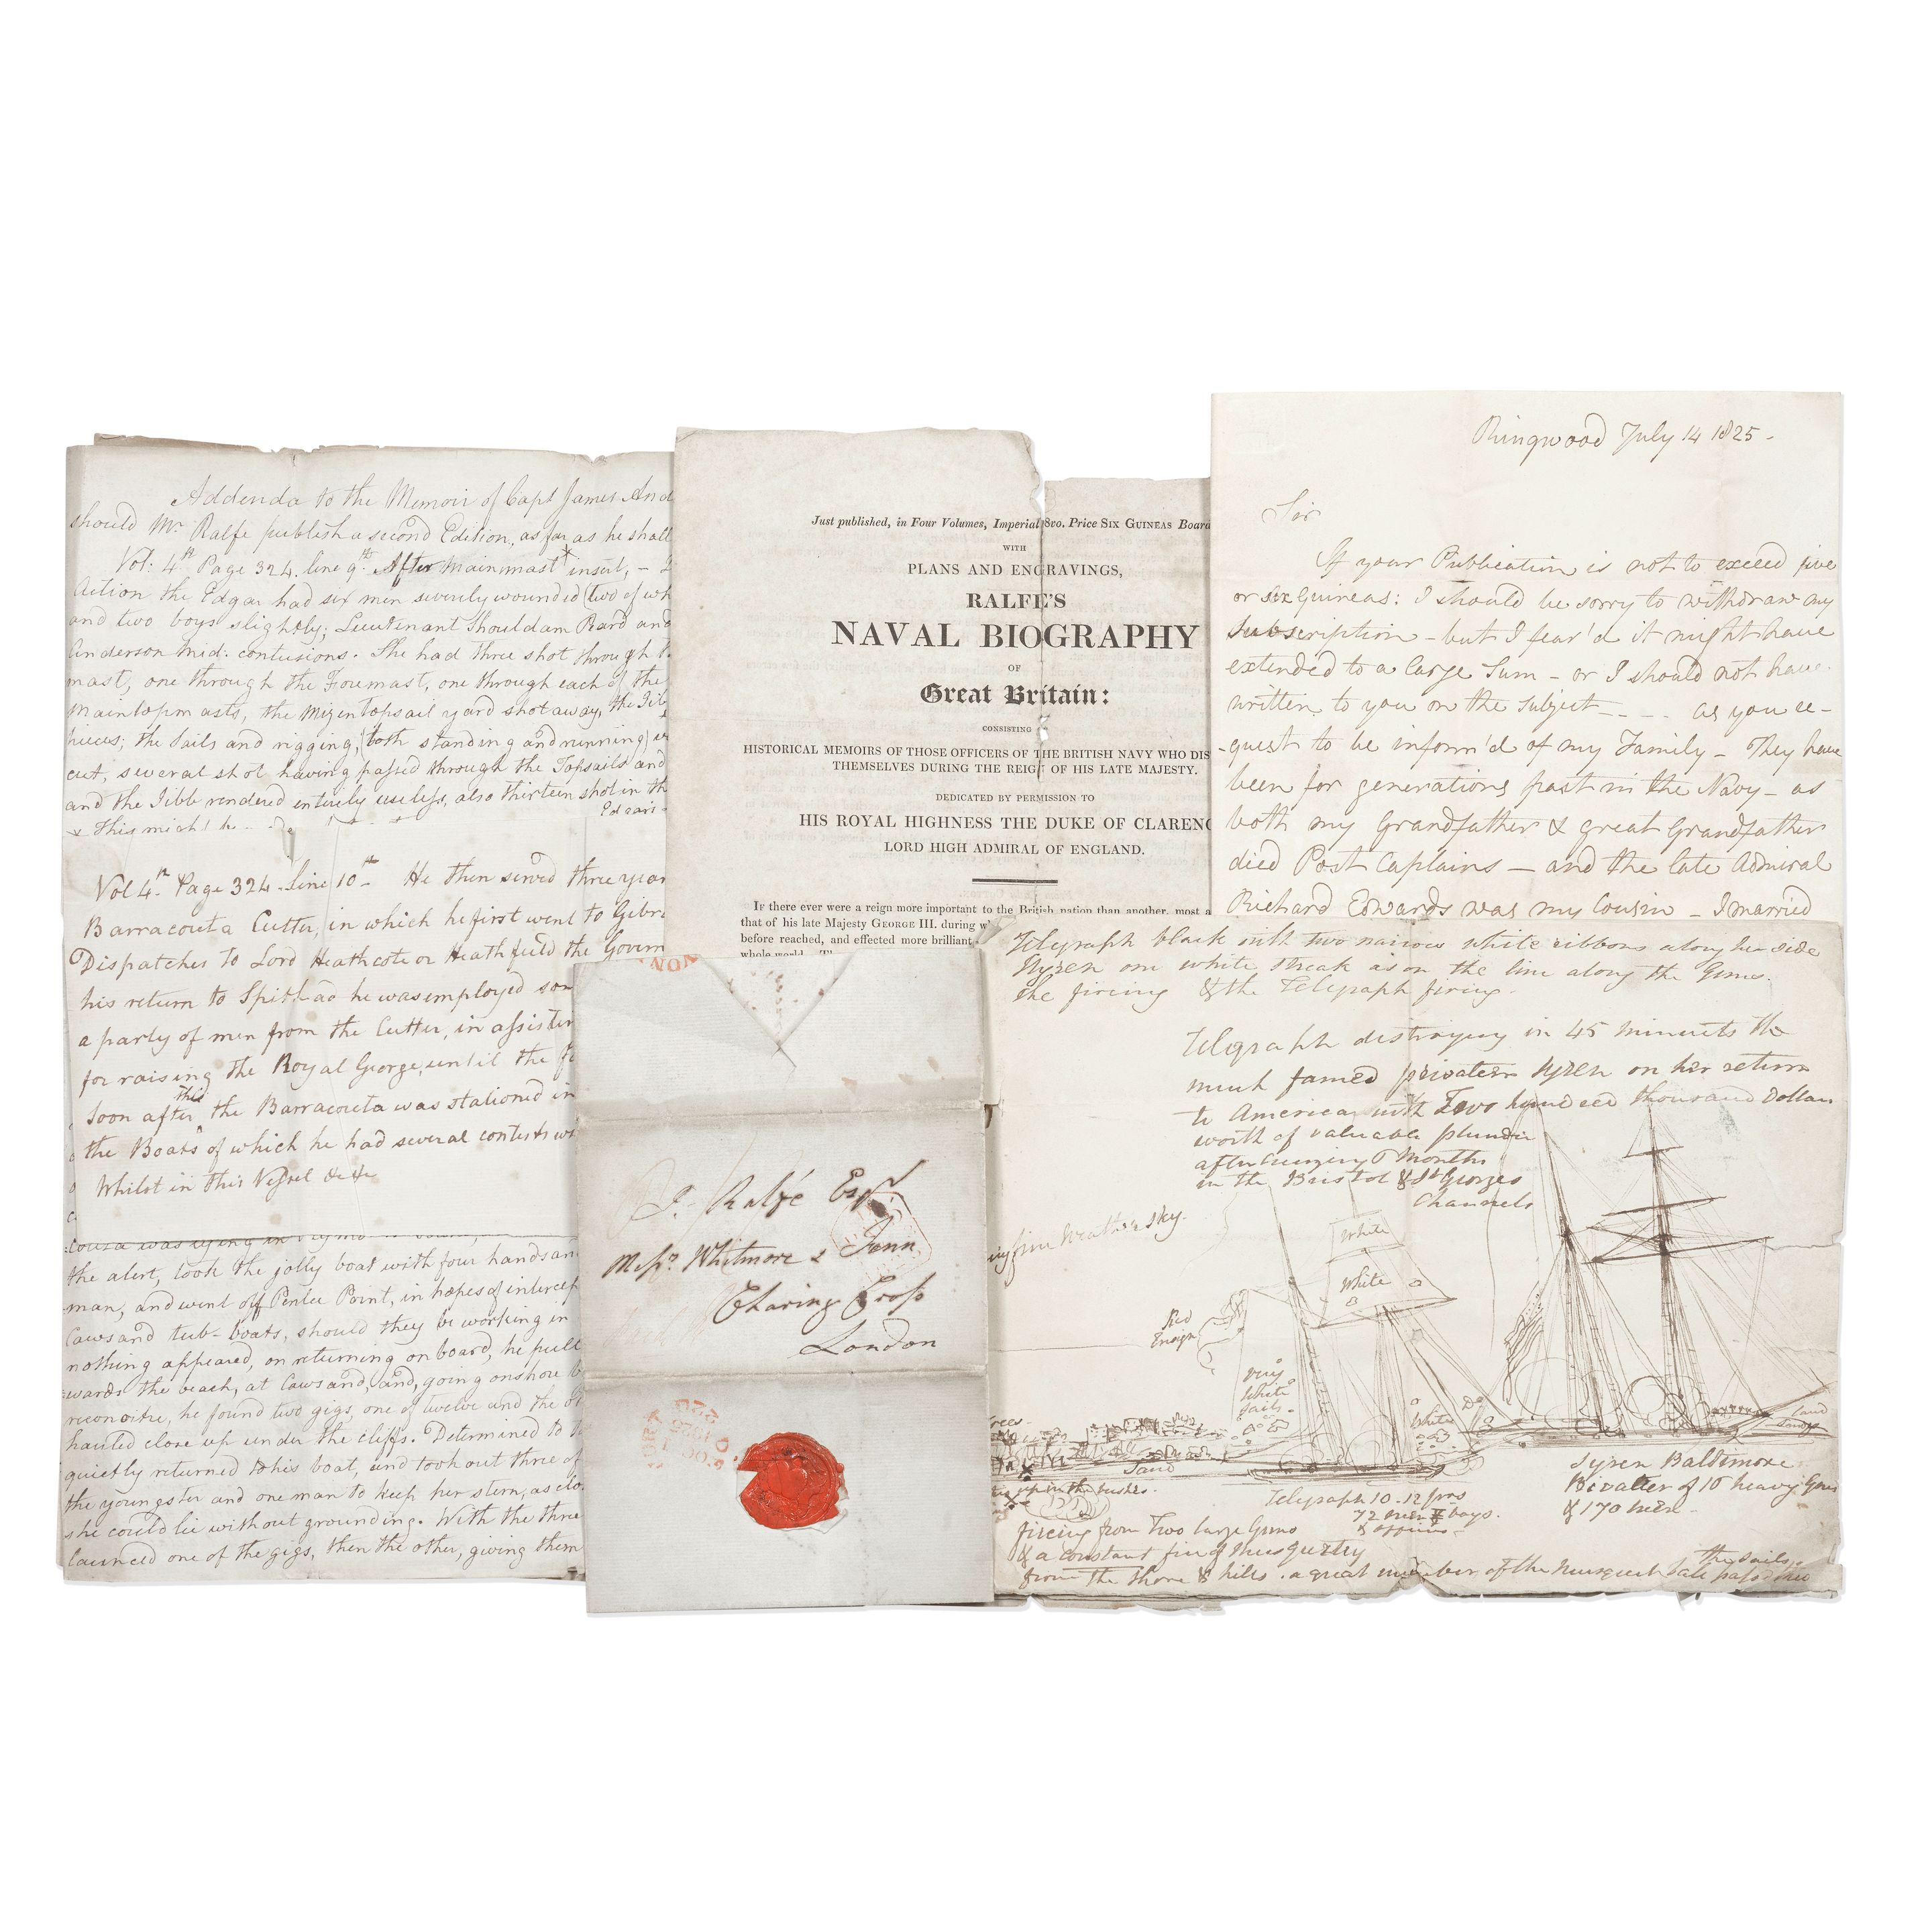 Addenda to the Memoir of Capt James And
should Mr. Ralfe publish a second Edition, as far as he shall
Vol: 4th Page 324. line 9th. After Mainmast* insert, -
Action the Edgar had six men severely wounded (two of wh
and two boys slightly; Lieutenant Shouldam Peard and
Anderson mid: contusions. She had three shot through
mast, one through the Foremast, one through each of the
Maintopmasts, the Mizentopsail yard shot away, the Jib
pieces; the Sails and rigging, (both standing and running)
cut, several shot having passed through the Topsails and
and the Jibb rendered entirely useless, also thirteen shot in th
Edgar's
* This might be
Vol 4th Page 324. Line 10th He then served three year
Barracouta Cutter, in which he first went to Gibr
Dispatches to Lord Heathcote or Heathfield the Govern
his return to Spithead he was employed som
a party of men from the Cutter, in assistin
for raising the Royal George, until the
Soon after this the Barracouta was stationed in
the Boats of which he had several contests wi
Whilst in this Vessel &c &c
couta was lying in
the alert, took the jolly boat with four hands an
man, and went off Penlee Point, in hopes of intercep
Cawsand tub-boats, should they be working in
nothing appeared, on returning on board, he pull
wards the beach, at Cawsand, and, going onshore
reconoitre, he found two gigs, one of twelve and the o
hauled close up under the cliffs. Determined to
quietly returned to his boat, and took out three of
the youngster and one man to keep her stern, as clo
she could lie without grounding. With the three
launced one of the gigs, then the other, giving them
Just published, in Four Volumes, Imperial 8vo. Price SIX GUINEAS Board
WITH
PLANS AND ENGRAVINGS,
RALFE'S
NAVAL BIOGRAPHY
OF
Great Britain:
CONSISTING
HISTORICAL MEMOIRS OF THOSE OFFICERS OF THE BRITISH NAVY WHO DIS
THEMSELVES DURING THE REIGN OF HIS LATE MAJESTY.
DEDICATED BY PERMISSION TO
HIS ROYAL HIGHNESS THE DUKE OF CLARENC
LORD HIGH ADMIRAL OF ENGLAND.
IF there ever were a reign more important to the British nation than another, most a
that of his late Majesty GEORGE III. during w
before reached, and effected more brilliant
whole world.
Ringwood July 14 1825.
Sir
If your Publication is not to exceed five
or six Guineas: I should be sorry to withdraw my
subscription - but I fear'd it might have
extended to a large Sum - or I should not have
written to you on the subject - - - - as you re-
-quest to be inform'd of my Family - They have
been for generations past in the Navy - as
both my Grandfather & great Grandfather
died Post Captains - and the late Admiral
Richard Edwards was my Cousin - I married
J. Ralfe Esqr
Messrs. Whitmore & Fenn
Charing Cross
London
Telegraph black with two narrow white ribbons along her side
Syren one white streak as on the line along the Guns.
the firing & the Telegraph firing.
Telegraph destroying in 45 minuets the
much famed privateer Syren on her return
to America with Two hundred thousand Dollars
worth of valuable plunder
after cruizing 6 Months
in the Bristol & St Georges
Channels
fine Weather sky.
White
White
Red
Ensign
very
White
Sails.
White
Do
Land
Sandy
Trees
Sand
up in the bushes.
Telegraph 10. 12 prs
72 men & boys.
& officers
Syren Baltimore
Privateer of 16 heavy Guns
& 170 men
firing from Two large Guns
& a constant fire of Musquetry
from the Shore & hills. a great number of the Musquet balls passed thro
the sails.